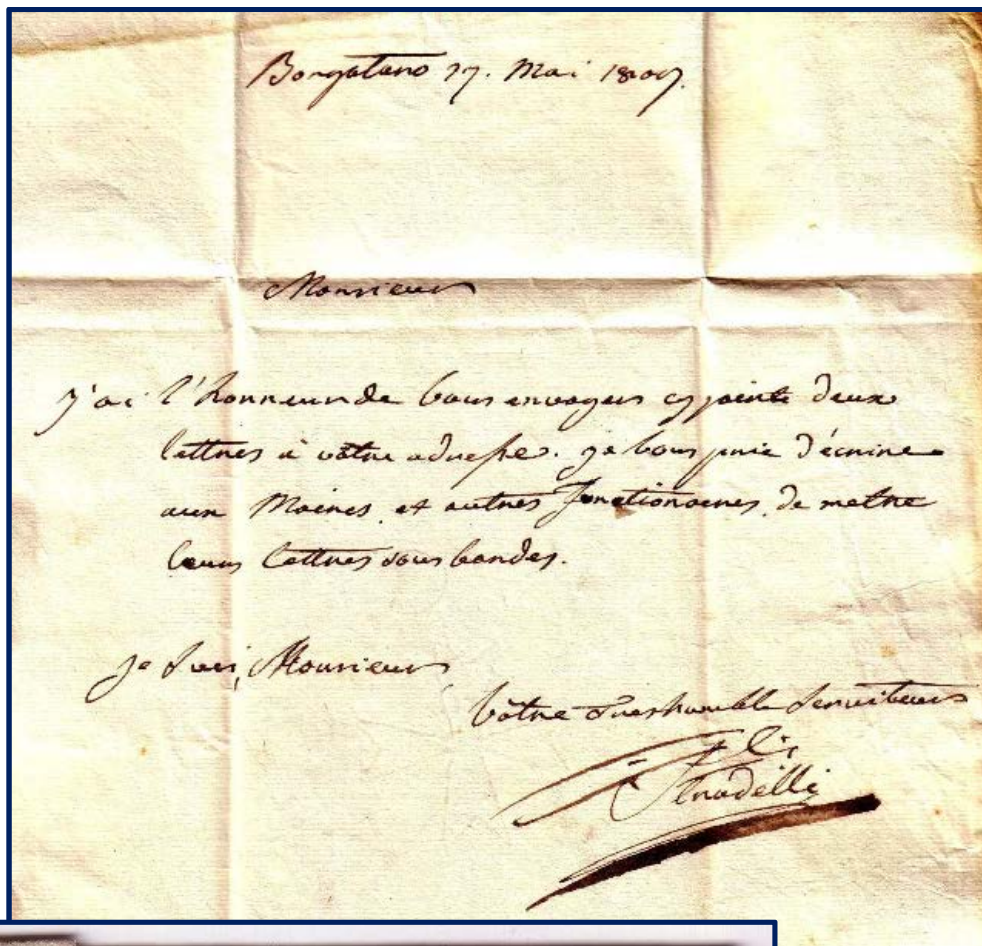 Borgotaro 27. Mai 1807.
Monsieur
J'ai l'honneur de vous envoyer cy jointe deux
lettres à vôtre adresse. je vous prie d'écrire
aux Maires et autres fonctionaires de metre
leurs lettres sous bandes.
je suis, Monsieur,
Vôtre tres humble serviteur